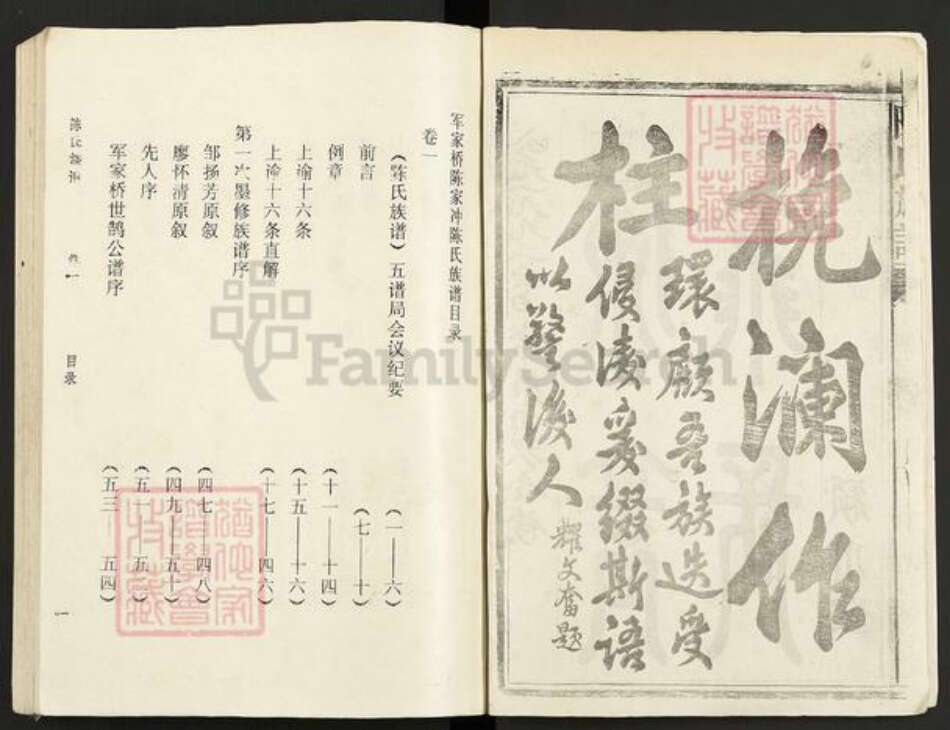 挽澜作
柱
環顧吾族迭受
侵凌爰綴斯語
以警後人
耀文奮题
军家桥陈家冲陈氏族谱目录
卷一
《陈氏族谱》五谱局会议纪要 （一——六）
前言 （七——十）
例章 （十一——十四）
上谕十六条 （十五——十六）
上谕十六条直解 （十七——四六）
第一次墨修族谱序
邹扬芳原叙 （四七——四八）
廖怀清原叙 （四九——五十）
先人序
军家桥世鹄公谱序 （五三 五四）
陈氏族谱 卷一 目录 一
FamilySearch